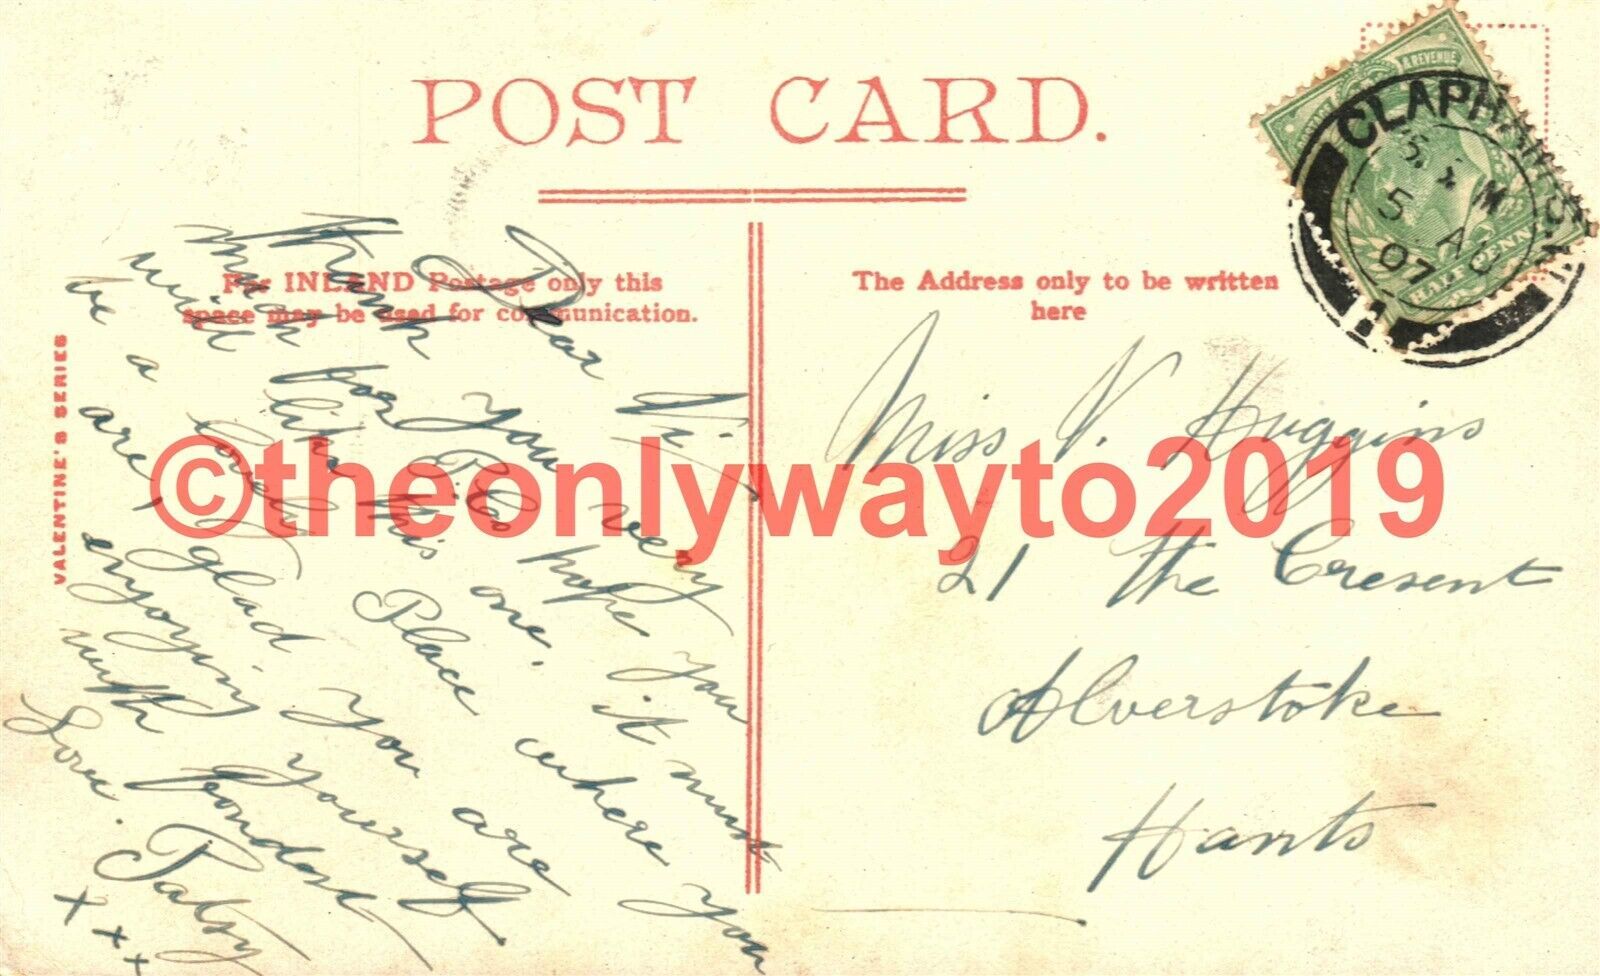 POST CARD.
For INLAND Postage only this
space may be used for communication.
The Address only to be written
here
VALENTINE'S SERIES
Dear Vi.
Thank you very
much for P.C. hope you
will like this one. it must
be a lovely Place where you
are, glad you are
enjoying yourself.
with fondest
Love.
Patsy
x x x
Miss V. Huggins
21 The Cresent
Alverstoke
Hants
CLAPHAM S.W.
5 AU
07
& REVENUE
HALF PENNY
©theonlywayto2019